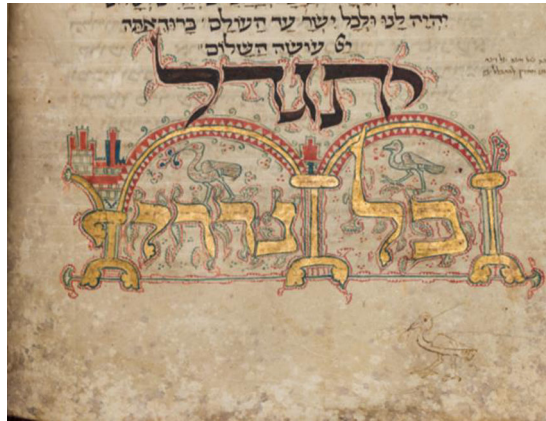 יהיה לנו ולכל ישר׳ עד העולם׳ ברוך אתה
יי׳ עושה השלום׳
יתגדל
כל נדרי